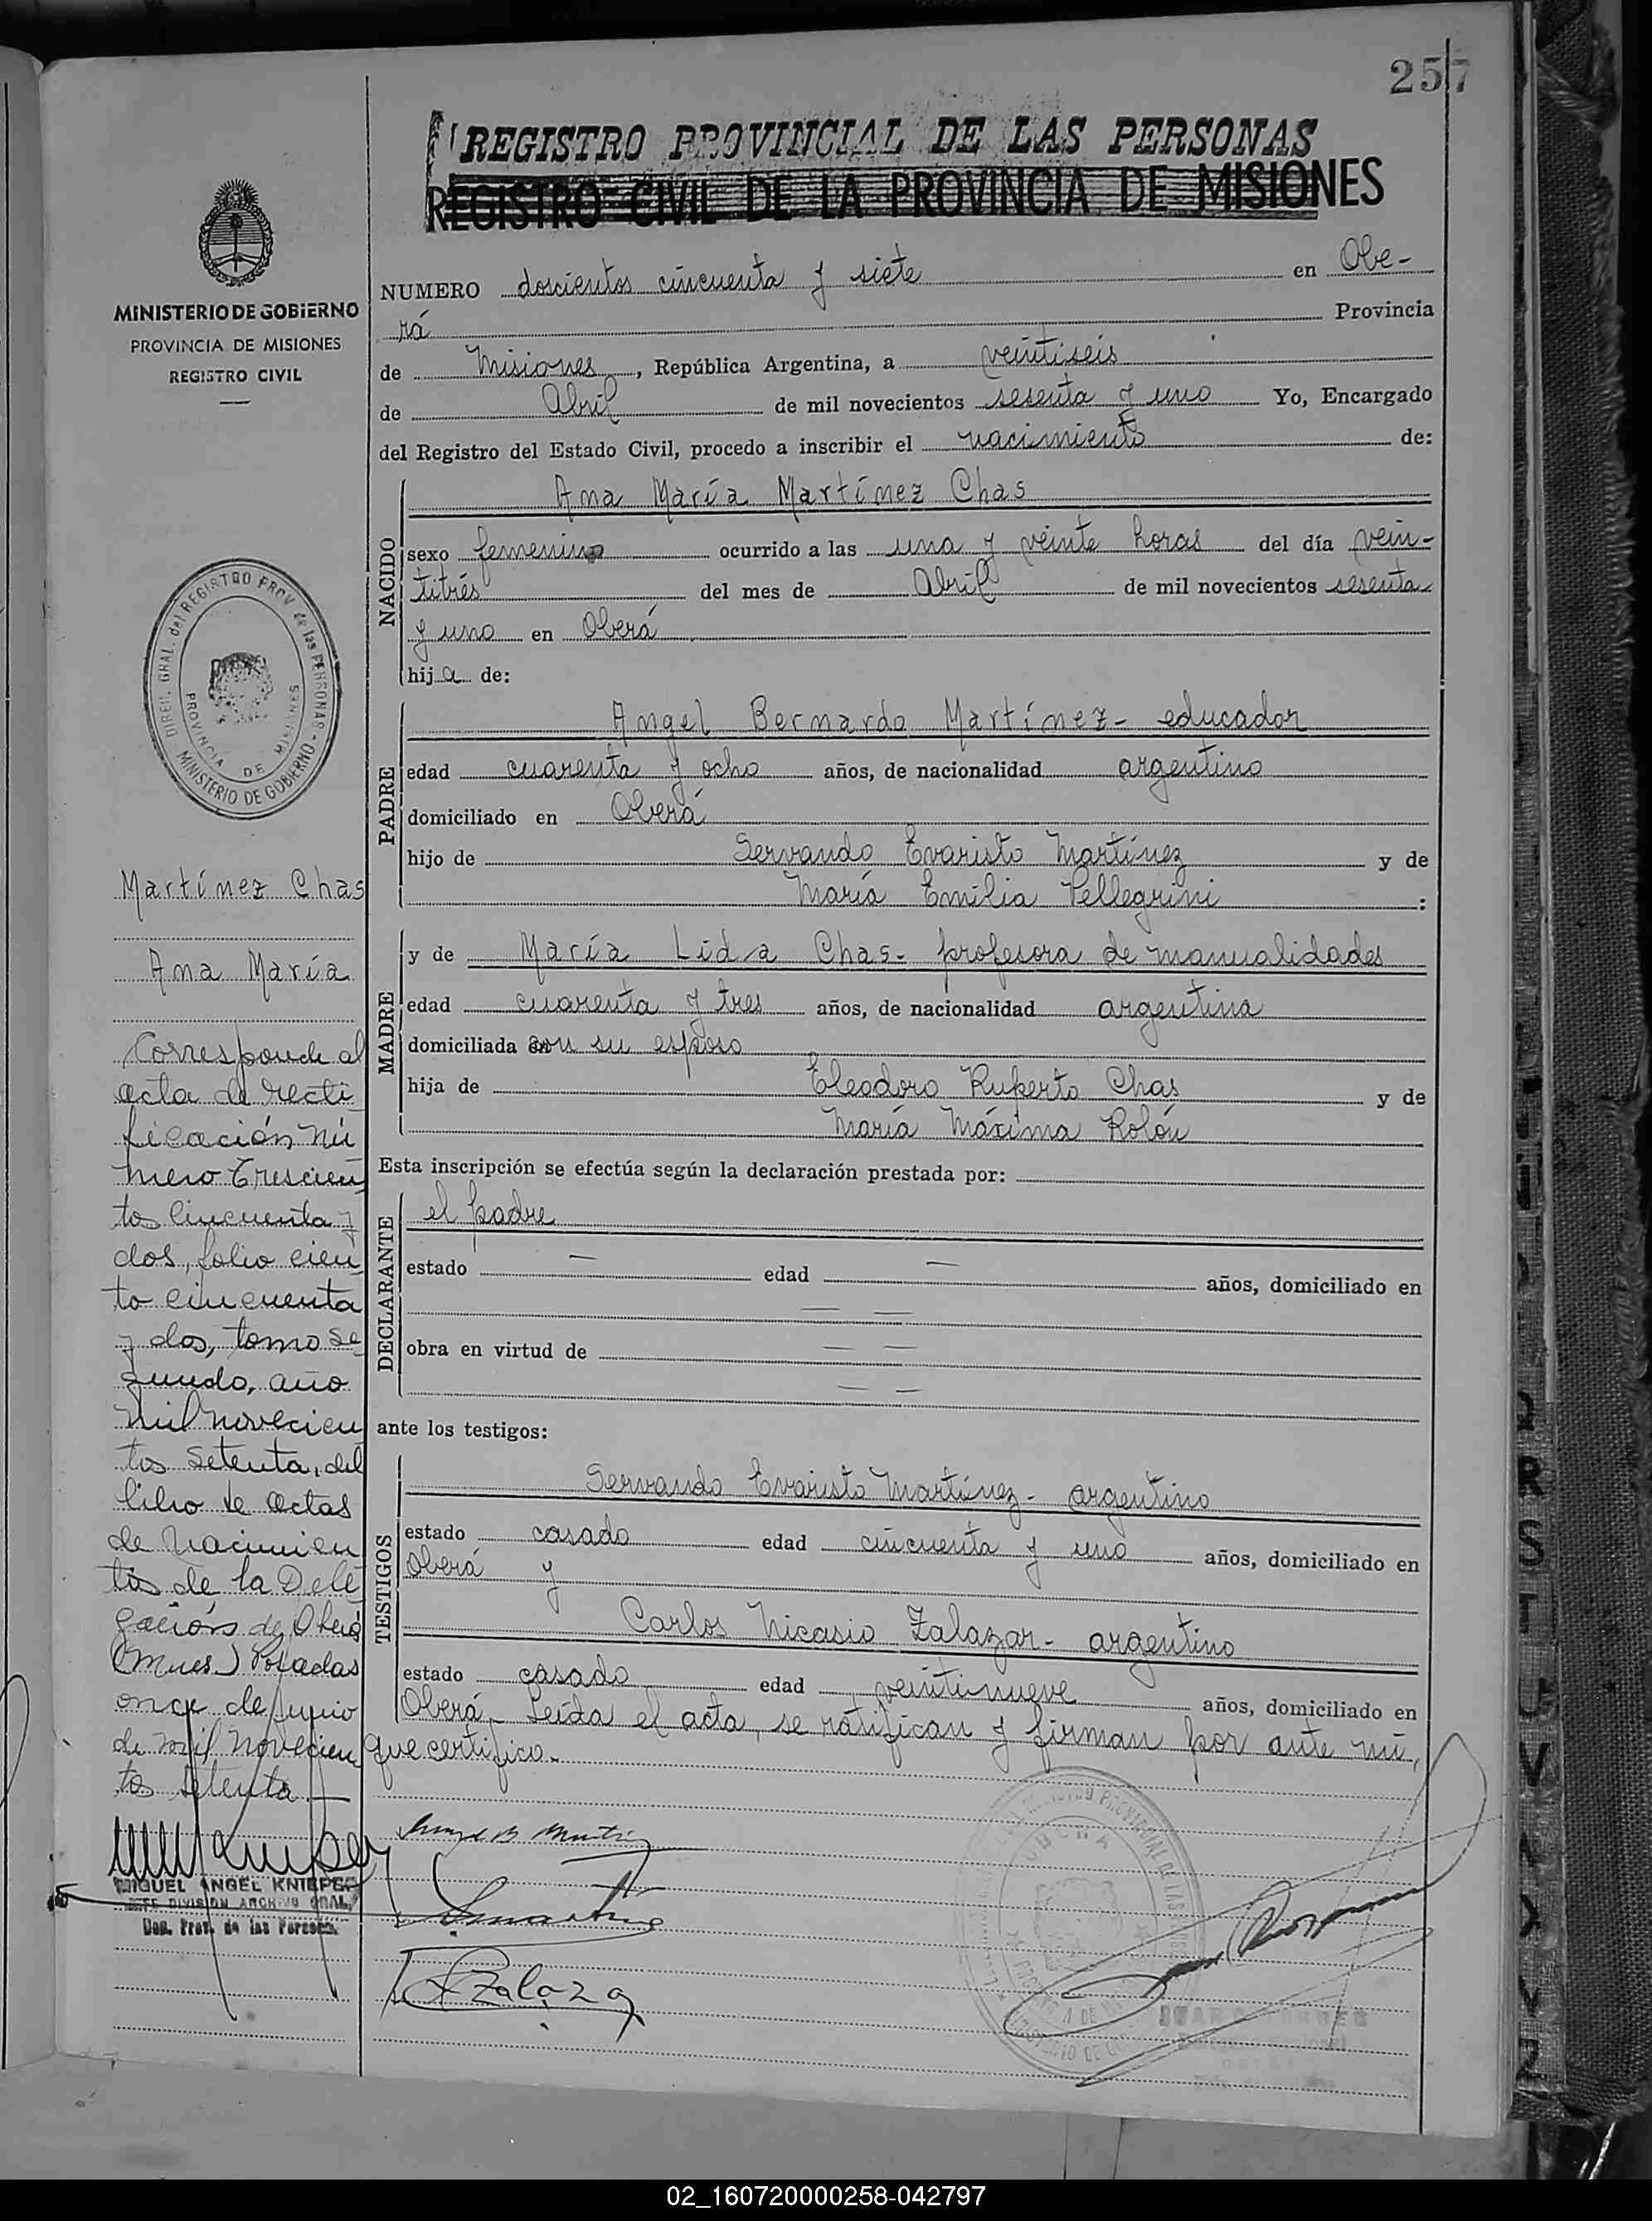 257
REGISTRO PROVINCIAL DE LAS PERSONAS
REGISTRO CIVIL DE LA PROVINCIA DE MISIONES
MINISTERIO DE GOBIERNO
PROVINCIA DE MISIONES
REGISTRO CIVIL
NUMERO doscientos cincuenta y siete en Obe-
rá Provincia
de Misiones, República Argentina, a veintiseis
de Abril de mil novecientos sesenta y uno Yo, Encargado
del Registro del Estado Civil, procedo a inscribir el nacimiento de:
NACIDO
Ana María Martínez Chas
sexo femenino ocurrido a las una y veinte horas del día vein-
titrés del mes de Abril de mil novecientos sesenta
y uno en Oberá
hija de:
PADRE
Angel Bernardo Martínez- educador
edad cuarenta y ocho años, de nacionalidad argentino
domiciliado en Oberá
hijo de Servando Evaristo Martínez y de
María Emilia Pellegrini :
MADRE
y de María Lida Chas- profesora de manualidades
edad cuarenta y tres años, de nacionalidad argentina
domiciliada con su esposo
hija de Eleodoro Ruperto Chas y de
María Máxima Rolón
Esta inscripción se efectúa según la declaración prestada por:
DECLARANTE
el padre
estado — edad — años, domiciliado en
— —
obra en virtud de — —
— —
ante los testigos:
TESTIGOS
Servando Evaristo Martínez- argentino
estado casado edad cincuenta y uno años, domiciliado en
Oberá y
Carlos Nicasio Zalazar- argentino
estado casado edad veintinueve años, domiciliado en
Oberá- Leída el acta, se ratifican y firman por ante mí,
que certifico.-
DIREC. GRAL. del REGISTRO PROV. de las PERSONAS - MINISTERIO DE GOBIERNO
PROVINCIA DE MISIONES
Martínez Chas
Ana María
Corresponde al
acta de recti
ficación nú
mero trescien
tos cincuenta y
dos, folio cien
to cincuenta
y dos, tomo se
gundo, año
mil novecien
tos setenta, del
libro de actas
de nacimien
tos de la Dele
gación de Oberá
(Mnes.) Posadas
once de Junio
de mil novecien
tos setenta.—
MIGUEL ANGEL KNIEPSE
JEFE DIVISION ARCHIVO GRAL.
Zalazar
02_160720000258-042797